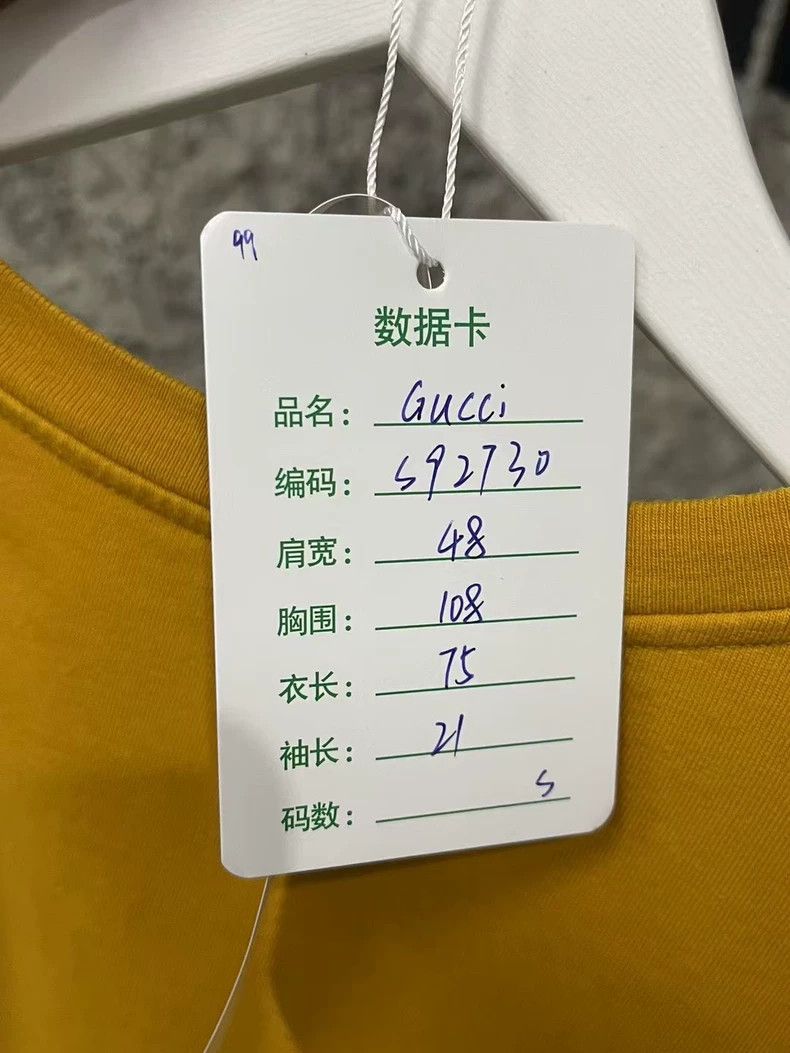 99
数据卡
品名: Gucci
编码: S92730
肩宽: 48
胸围: 108
衣长: 75
袖长: 21
码数: S